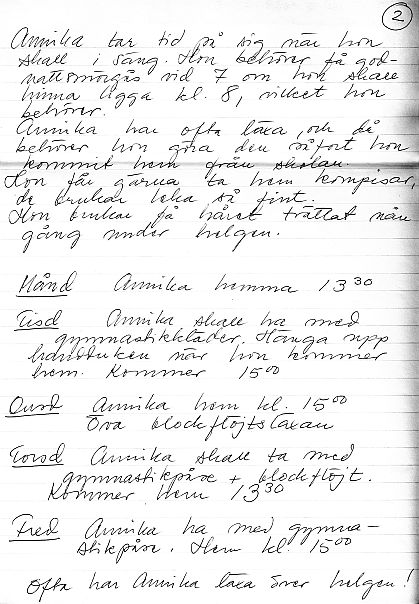 2
Annika tar tid på sig när hon
skall i säng. Hon behöver få god-
nattsmörgås vid 7 om hon skall
hinna ligga kl. 8, vilket hon
behöver.
Annika har ofta läxa, och då
behöver hon göra den så fort hon
kommit hem från skolan.
Hon får gärna ta hem kompisar,
de brukar leka så fint.
Hon brukar få håret tvättat någon
gång under helgen.
Månd Annika hemma 13 30
Tisd Annika skall ha med
gymnastikkläder. Hänga upp
handduken när hon kommer
hem. Kommer 15 00
Onsd Annika hem kl. 15 00
Öva blockflöjtsläxan
Torsd Annika skall ta med
gymnastikpåse + blockflöjt.
Kommer hem 13 30
Fred Annika ha med gymna-
stikpåse. Hem kl. 15 00
Ofta har Annika läxa över helgen!